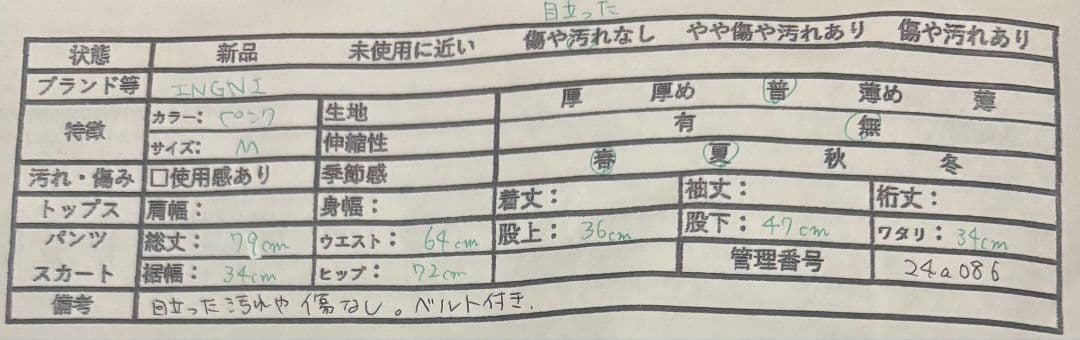 目立った
状態 新品 未使用に近い 傷や汚れなし やや傷や汚れあり 傷や汚れあり
ブランド等 INGNI
特徴 カラー: ピンク 生地 厚 厚め 普 薄め 薄
サイズ: M 伸縮性 有 無
汚れ・傷み □使用感あり 季節感 春 夏 秋 冬
トップス 肩幅: 身幅: 着丈: 袖丈: 裄丈:
パンツ 総丈: 79cm ウエスト: 64cm 股上: 36cm 股下: 47cm ワタリ: 34cm
スカート 裾幅: 34cm ヒップ: 72cm 管理番号 24a086
備考 目立った汚れや傷なし。ベルト付き.